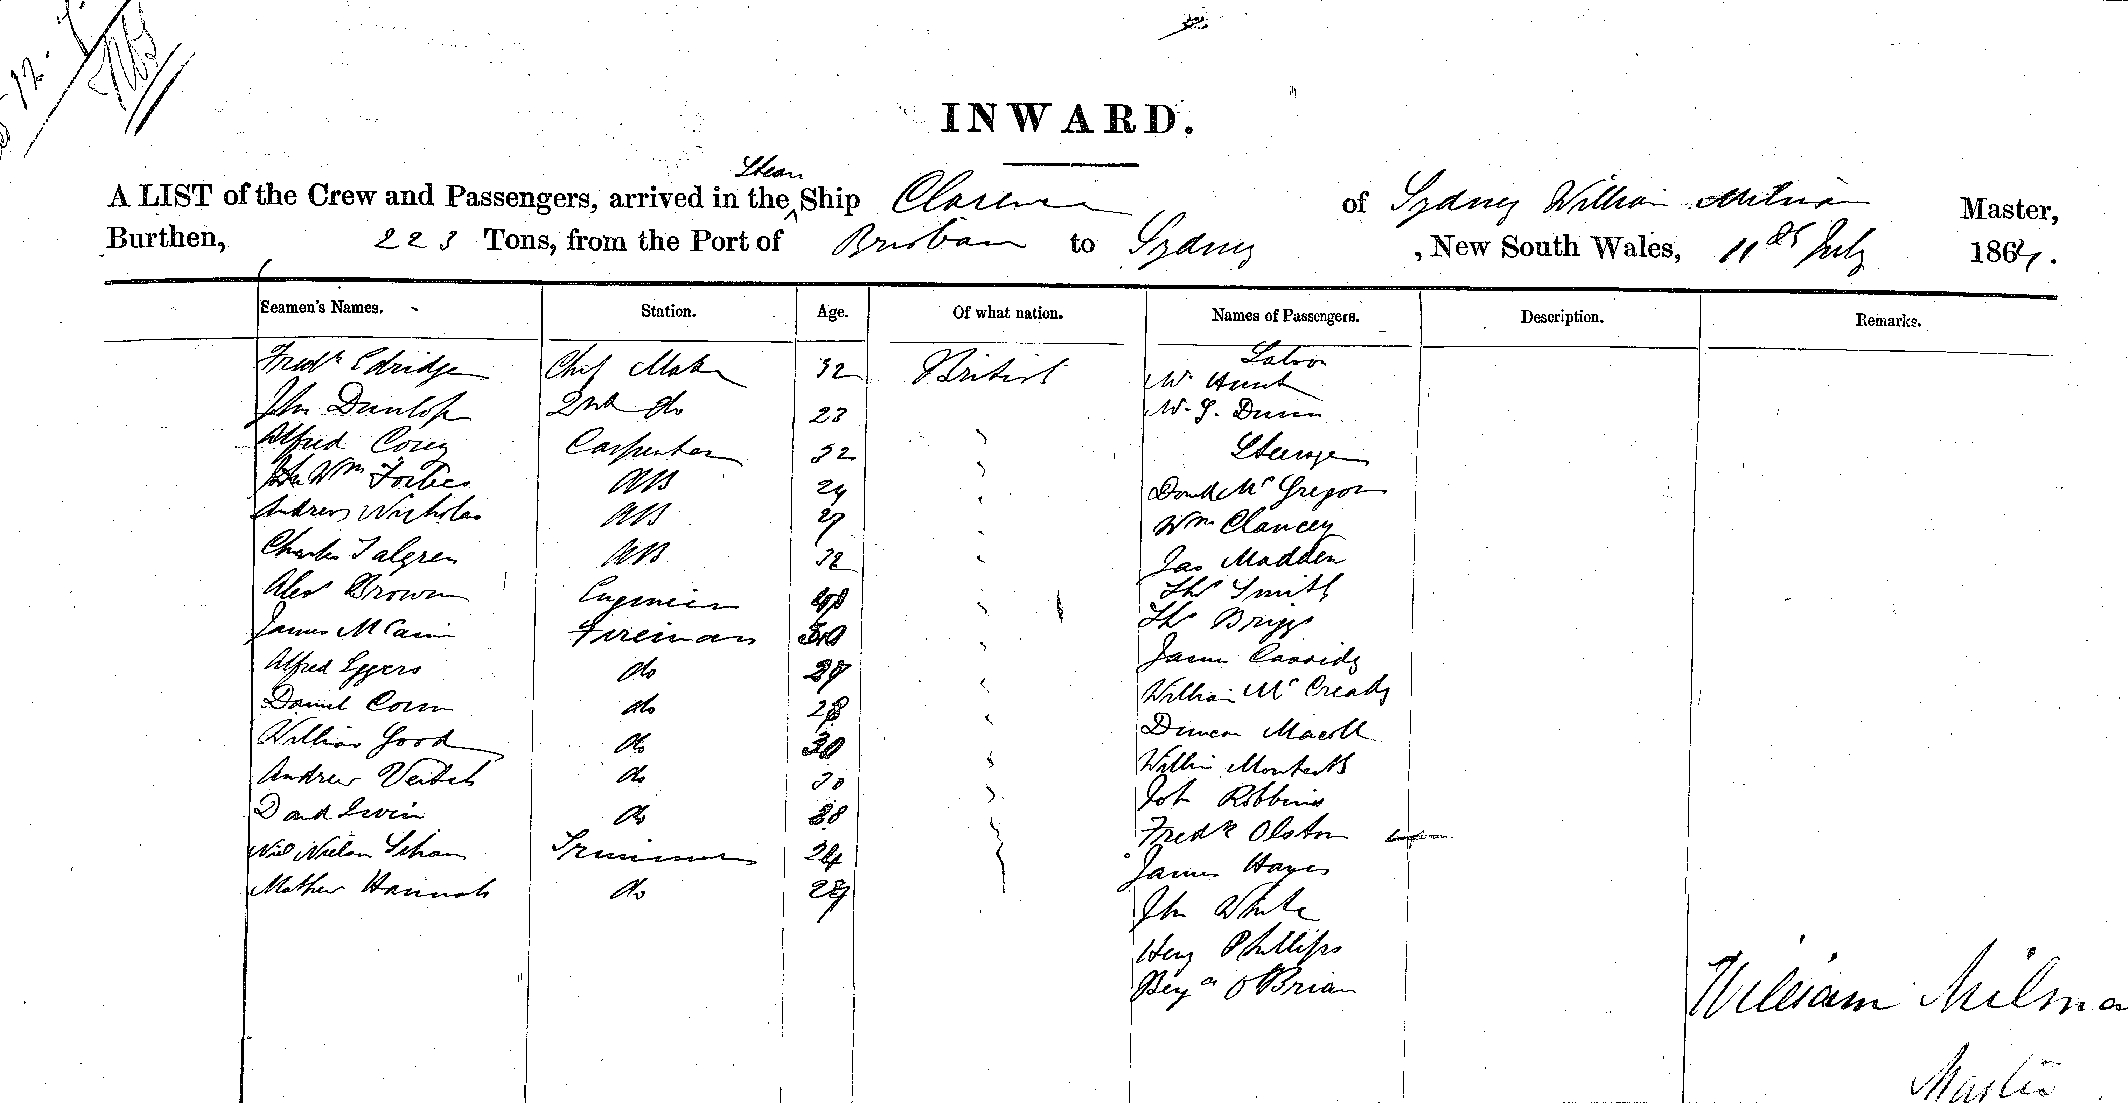 12.
INWARD.
Steam
A LIST of the Crew and Passengers, arrived in the Ship Clarence of Sydney William Milman Master,
Burthen, 223 Tons, from the Port of Brisbane to Sydney , New South Wales, 11th July 186
Seamen's Names. Station. Age. Of what nation. Names of Passengers. Description. Remarks.
Saloon
Fredk Edridge Chief Mate 32 British Mr Hunt
Jhn Dunlop 2nd do 23 W. J. Dunn
Alfred Corey Carpenter 32 Steerage
Wm Forbes AB 24 Donld McGregor
Andrew Nicholas AB 27 Wm Clancey
Charles Talgren AB 32 Jas Madden
Alex Brown Engineer Ths Smith
James McCain Fireman Ths Briggs
Alfred Eggers do James Cassidy
Daniel do 28 William McCready
William Good do 30 Duncan Macoll
Andrew Veitch do 30 William Monteith
David Irwin do Joh Robbins
Trimmer 24 Fredk Olston
Mathew Hannah do James Hayes
Jhn White
Heny Phillips
Benjn O'Brian
William Milma
Master